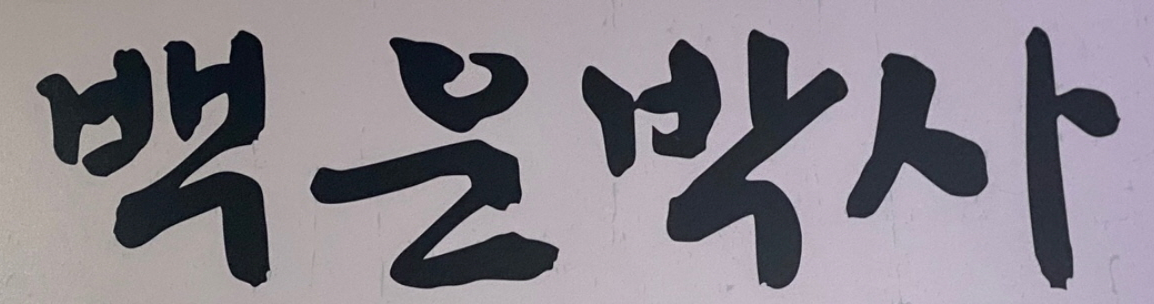 백운박사